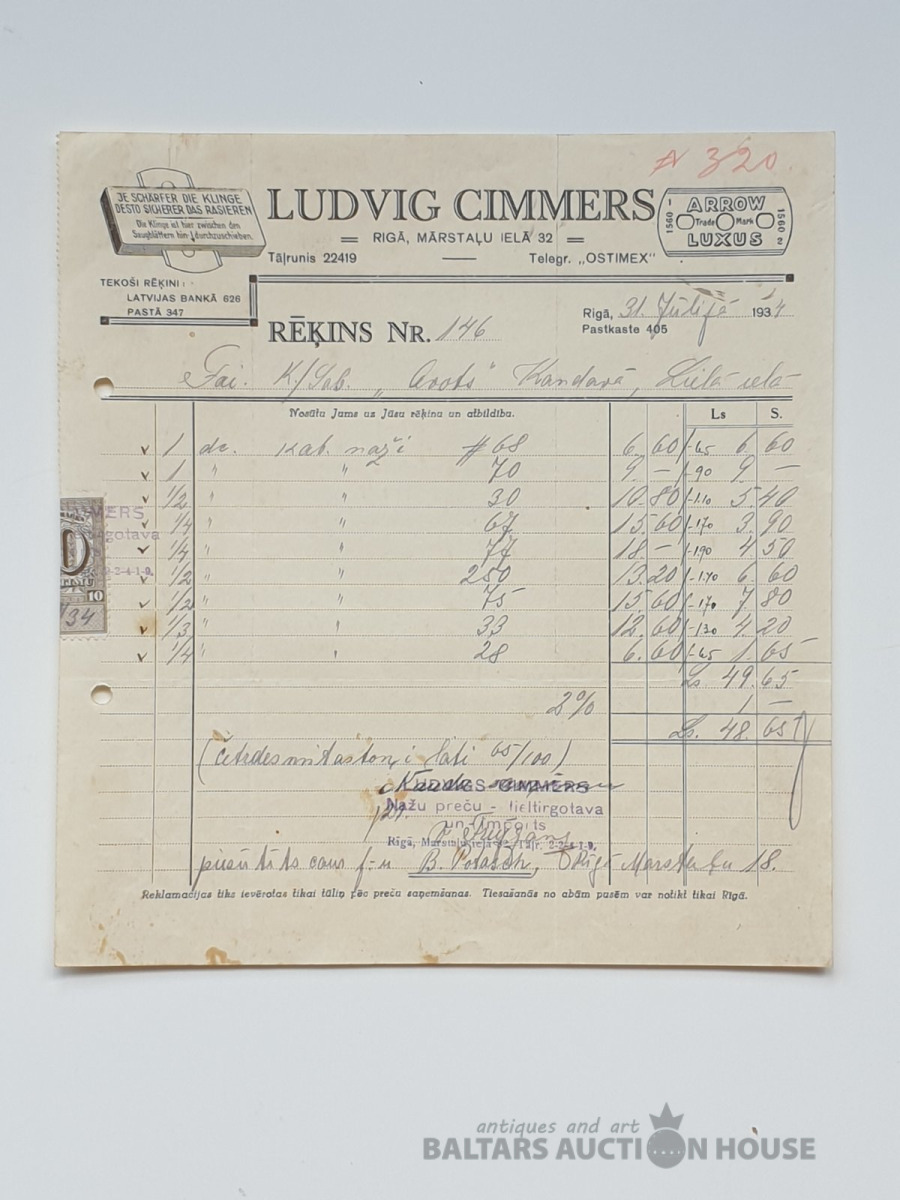 N 320.
JE SCHÄRFER DIE KLINGE
DESTO SICHERER DAS RASIEREN
Die Klinge ist hier zwischen den
Saugblättern hin- durchzuschieben.
LUDVIG CIMMERS
RIGĀ, MĀRSTAĻU IELĀ 32
Tāļrunis 22419
Telegr. „OSTIMEX"
1560 1
ARROW
Trade Mark
LUXUS
1560 2
TEKOŠI RĒĶINI:
LATVIJAS BANKĀ 626
PASTĀ 347
Rīgā, 31. Jūlijā 1934
Pastkaste 405
RĒĶINS NR. 146
Tai. K/Sab. „Avots" Kandavā, Lielā ielā
Nosūtu Jums uz Jūsu rēķina un atbildību. Ls S.
v 1 dc. kab. naži #68 6. 60 /-65 6. 60
v 1 " " 70 9. — /-90 9. —
v 1/2 " " 30 10. 80 /-1.10 5. 40
v 1/4 " " 67 15. 60 /-1.70 3. 90
v 1/4 " " 77 18. — /-1.90 4. 50
v 1/2 " " 250 13. 20 /-1.40 6. 60
v 1/2 " " 75 15. 60 /-1.70 7. 80
v 1/3 " " 33 12. 60 /-1.30 4. 20
v 1/4 " " 28 6. 60 /-65 1. 65
Ls. 49. 65
2% 1 —
Ls. 48. 65
10
/34
MERS
tirgotava
2-2-4-1-9.
(četrdesmit astoņi lati 65/100)
LUDVIGS CIMMERS
Nažu preču - lieltirgotava
un imports
Rīgā, Marstaļu ielā 32, Tāļr. 2-2-4-1-9.
piesūtīts caur f-u B. Potasch, Rīgā Marstaļu 18.
Reklamacijas tiks ievērotas tikai tūlīņ pēc preču saņemšanas. Tiesašanās no abām pusēm var notikt tikai Rīgā.
antiques and art
BALTARS AUCTION HOUSE